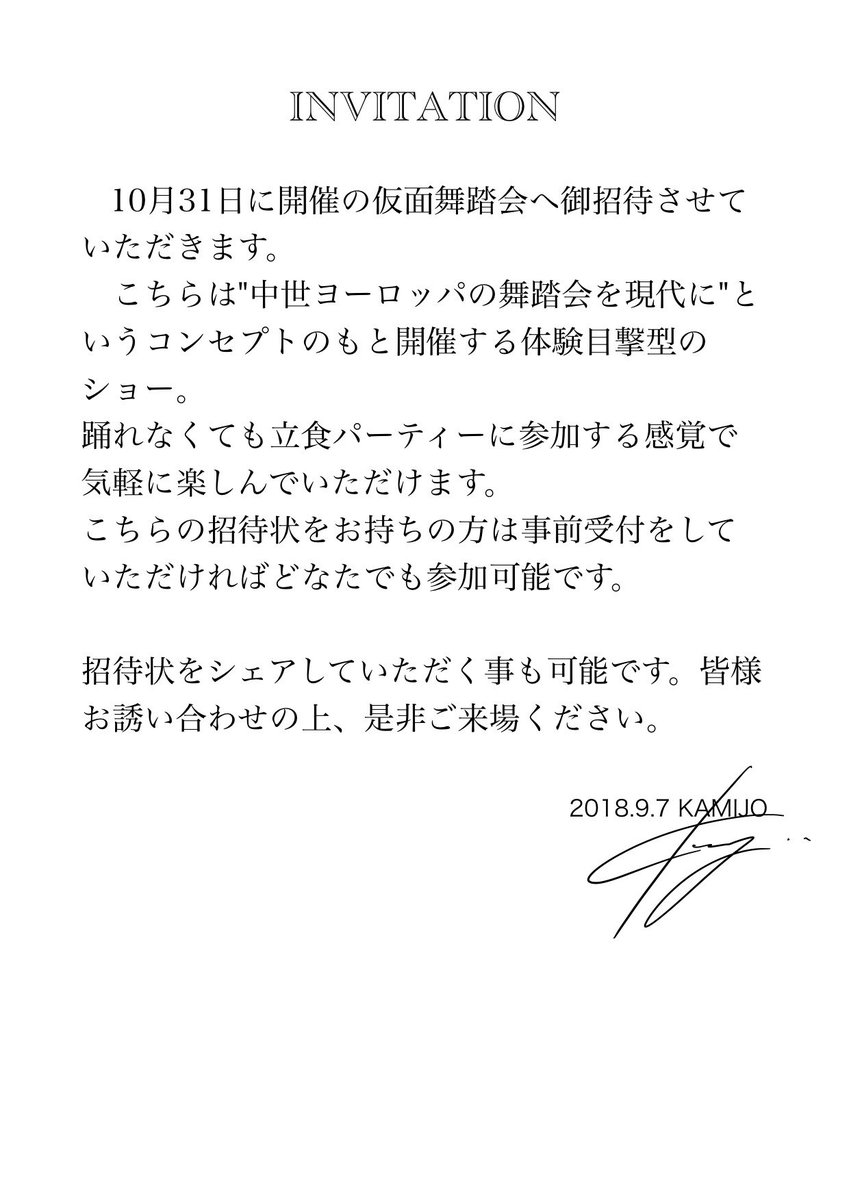 INVITATION
　10月31日に開催の仮面舞踏会へ御招待させて
いただきます。
　こちらは"中世ヨーロッパの舞踏会を現代に"と
いうコンセプトのもと開催する体験目撃型の
ショー。
踊れなくても立食パーティーに参加する感覚で
気軽に楽しんでいただけます。
こちらの招待状をお持ちの方は事前受付をして
いただければどなたでも参加可能です。
招待状をシェアしていただく事も可能です。皆様
お誘い合わせの上、是非ご来場ください。
2018.9.7 KAMIJO